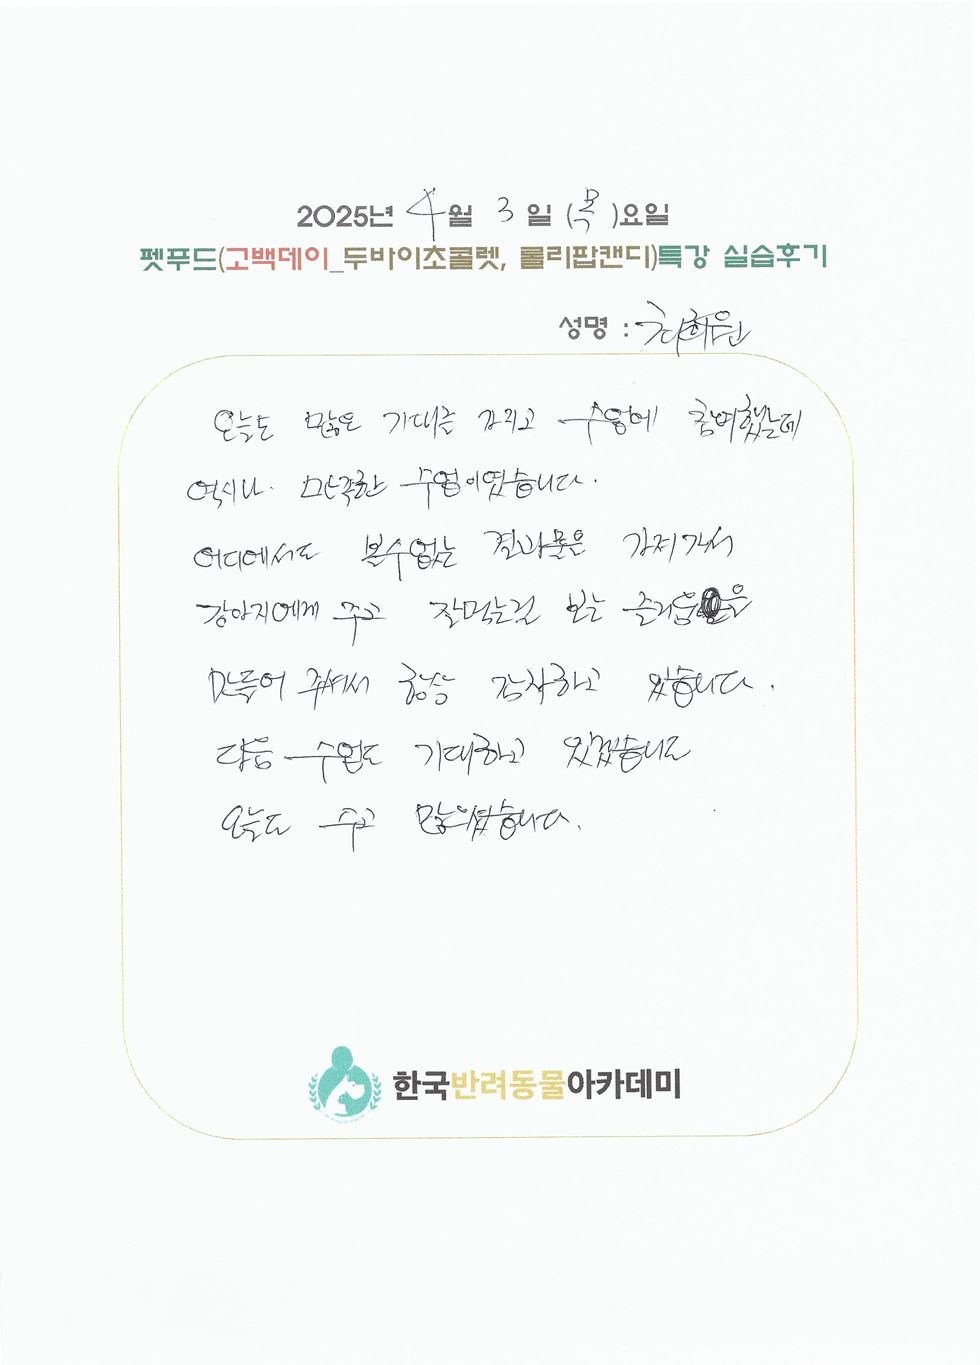 2025년 4월 3일 (목)요일
펫푸드(고백데이_두바이초콜렛, 롤리팝캔디)특강 실습후기
성명 : 최희원
오늘도 많은 기대를 가지고 수업에 참여했는데
역시나. 만족한 수업이였습니다.
어디에서도 볼수없는 결과물은 가져가서
강아지에게 주고 잘먹는걸 보는 즐거움을
만들어 주셔서 항상 감사하고 있습니다.
다음 수업도 기대하고 있겠습니다
오늘도 수고 많으셨습니다.
한국반려동물아카데미